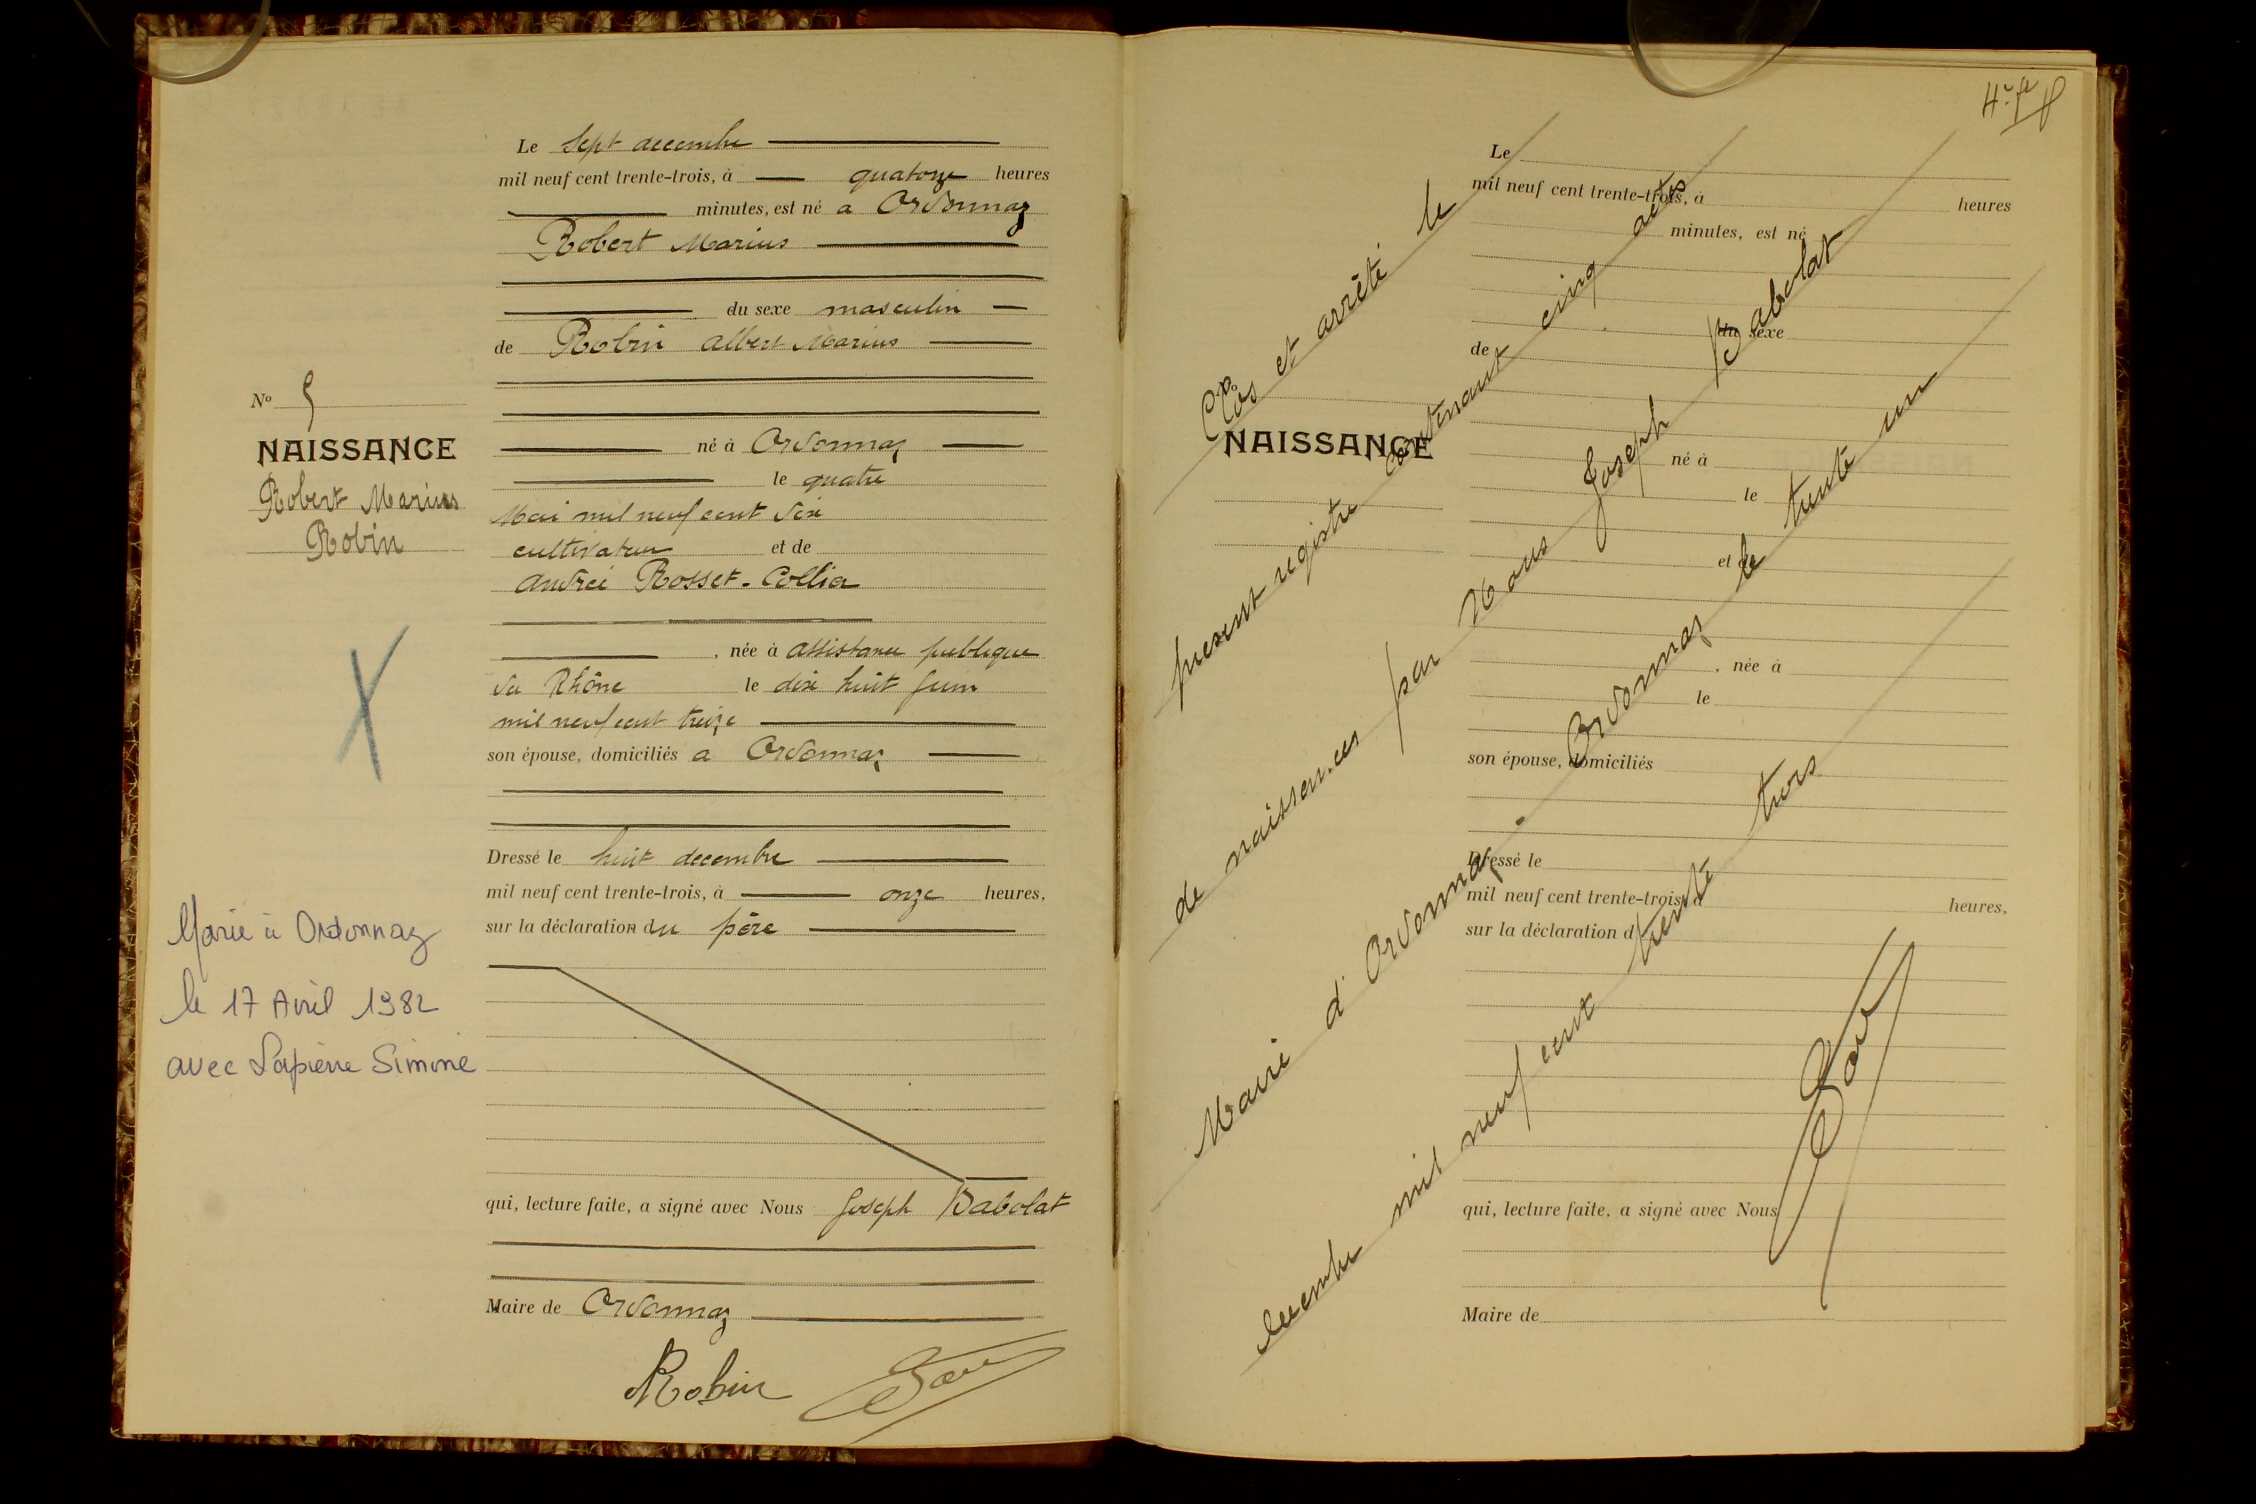 Le sept decembre
mil neuf cent trente-trois, à quatorze heures
minutes, est né a Ordonnaz
Robert Marius
du sexe masculin
de Robin Albert Marius
né à Ordonnaz
le quatre
Mai mil neuf cent six
cultivateur et de
Andrée Rosset-Collia
, née à assistance publique
du Rhône le dix huit Juin
mil neuf cent treize
son épouse, domiciliés a Ordonnaz
Dressé le huit decembre
mil neuf cent trente-trois, à onze heures,
sur la déclaration du père
qui, lecture faite, a signé avec Nous Joseph Babolat
Maire de Ordonnaz
Robin
No 5
NAISSANCE
Robert Marius
Robin
Marié à Ordonnaz
le 17 Avril 1982
avec Lapierre Simone
Le
mil neuf cent trente-trois, à heures
minutes, est né
du sexe
de
No
NAISSANCE
né à
le
et de
, née à
le
son épouse, domiciliés
Dressé le
mil neuf cent trente-trois, à heures,
sur la déclaration d
qui, lecture faite, a signé avec Nous
Maire de
Clos et arrêté le
present registre contenant cinq actes
de naissances par Nous Joseph Babolat
Maire d'Ordonnaz. Ordonnaz le trente un
decembre mil neuf cent trente trois